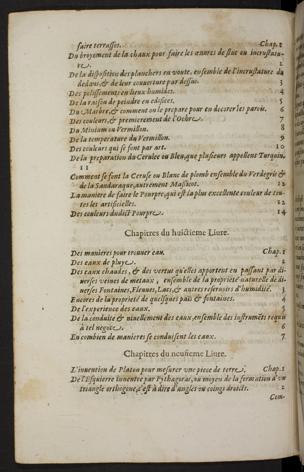 faire terrasses. Chap. 1
Du broyement de la chaux pour faire les œuures de stuc ou incrustatu-
re. 2
De la disposition des planchers en voute, ensemble de l'incrustature du
dedans, & de leur couuerture par dessus. 3
Des polissemens en lieux humides. 4
De la raison de peindre en edifices. 5
Du Marbre, & comment on le prepare pour en decorer les parois. 6
Des couleurs, & premierement de l'Ochre. 7
Du Minium ou Vermillon. 8
De la temperature du Vermillon. 9
Des couleurs qui se font par art. 10
De la preparation du Cerulee ou Bleu, que plusieurs appellent Turquin.
11
Comment se font la Ceruse ou Blanc de plomb ensemble du Verdegris &
de la Sandaraque, autrement Massicot. 12
La maniere de faire le Pourpre, qui est la plus excellente couleur de tou-
tes les artificielles. 13
Des couleurs dudict Pourpre. 14
Chapitres du huictieme Liure.
Des manieres pour trouuer eau. Chap. 1
Des eaux de pluye. 2
Des eaux chaudes, & des vertus qu'elles apportent en passant par di-
uerses veines de metaux, ensemble de la proprieté naturelle de di-
uerses Fontaines, Fleuues, Lacs, & autres reseruoirs d'humidité. 3
Encores de la proprieté de quelques païs & fontaines. 4
De l'experience des eaux. 5
De la conduite & niuellement des eaux, ensemble des instrumẽs requis
à tel negoce. 6
En combien de manieres se conduisent les eaux. 7
Chapitres du neufieme Liure.
L'inuention de Platon pour mesurer vne piece de terre. Chap. 1
De l'Esquierre inuentee par Pythagoras, au moyen de la formation d'vn
triangle orthogone, c'est à dire d'angles ou coings droicts. 2
Com-